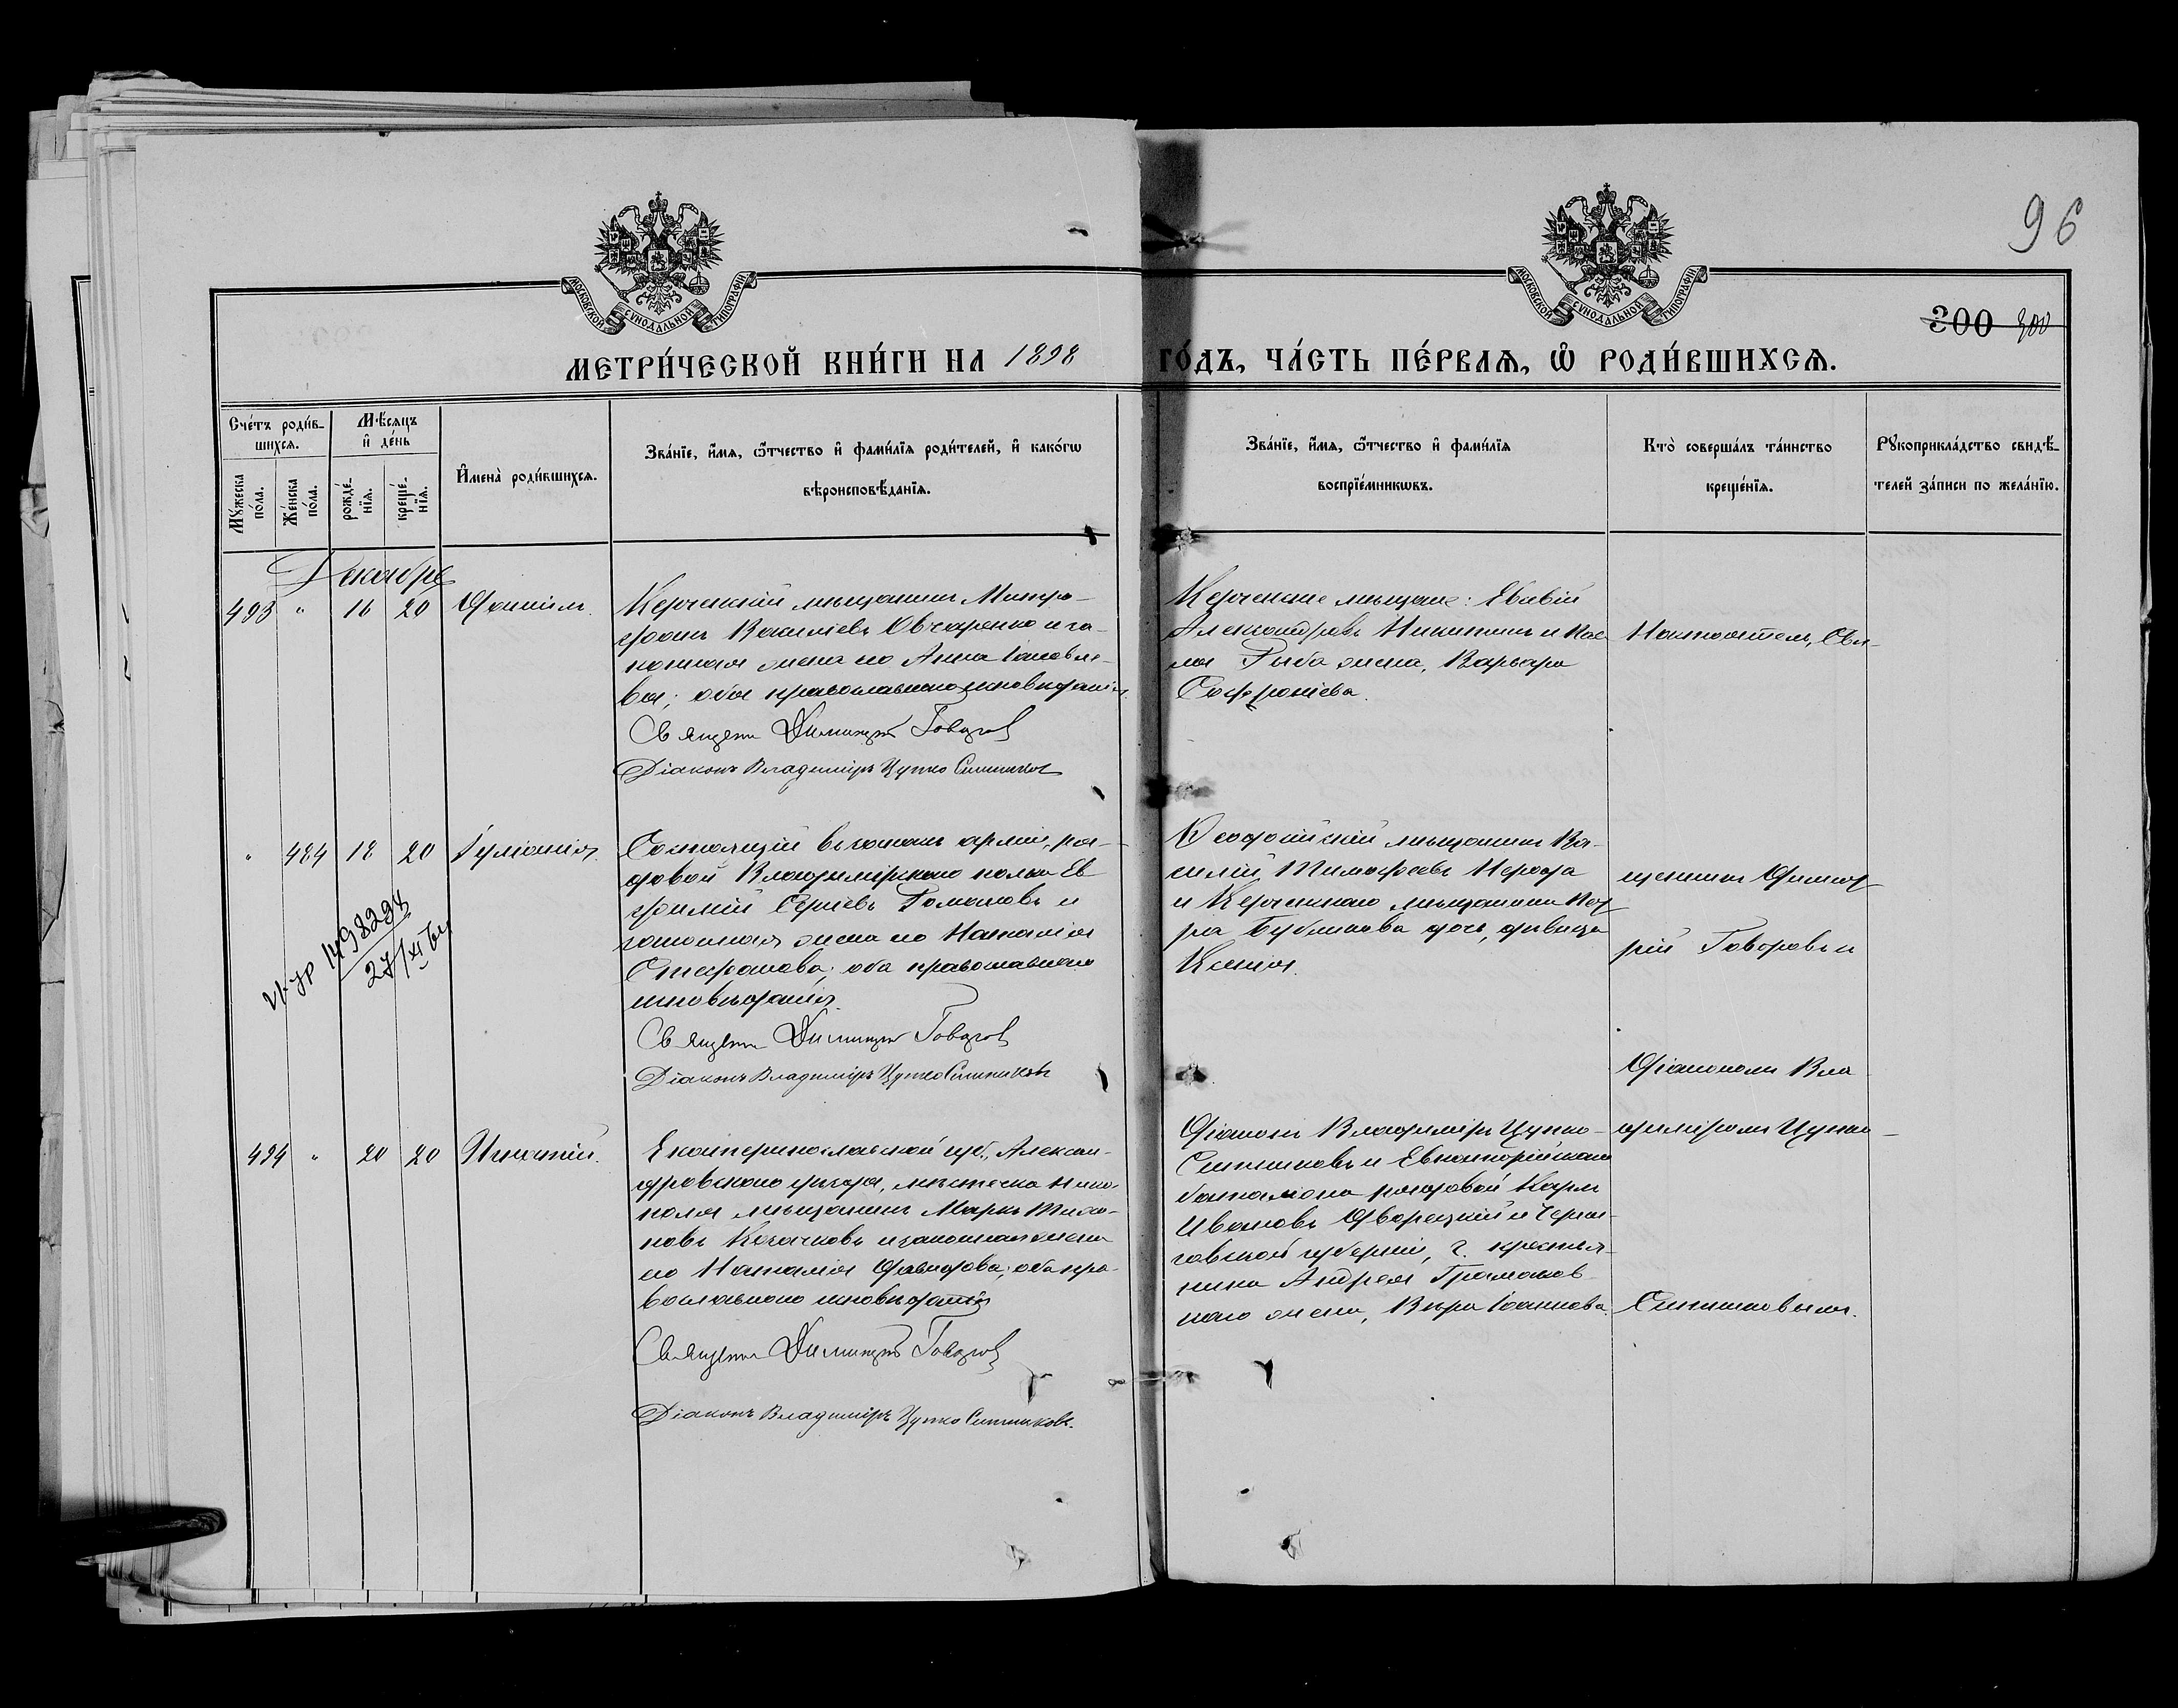 96
МОСКОВСКОЙ СѴНОДАЛЬНОЙ ТИПОГРАФІИ
МОСКОВСКОЙ СѴНОДАЛЬНОЙ ТИПОГРАФІИ
300 300
МЕТРИ́ЧЕСКОЙ КНИ́ГИ НА 1898 ГО́ДЪ, ЧА́СТЬ ПЕ́РВАѦ, Ѡ РОДИ́ВШИХСѦ.
Сче́тъ роди́в-
шихся.
Мꙋжеска по́ла.
Же́нска по́ла.
Мѣ́сяцъ
и де́нь
рожде́-
нїя.
креще́-
нїя.
Имена̀ роди́вшихся.
Зва́нїе, и́мя, ѻ́тчество и фами́лїя роди́телей, и како́гѡ
вѣроисповѣ́данїя.
Зва́нїе, и́мя, ѻ́тчество и фами́лїя
воспрїе́мникѡвъ.
Кто̀ соверша́лъ та́инство
креще́нїя.
Рꙋкоприкла́дство свидѣ́-
телей за́писи по жела́нїю.
Декабрь
493 " 16 20 Даніилъ.
Керченскій мѣщанинъ Митро-
фанъ Василіевъ Овчаренко и за-
конная жена его Анна Іаковле-
ва; оба православнаго исповѣданія.
Священ Димитрій Говоровъ
Діаконъ Владиміръ Цупко Ситниковъ
Керченскіе мѣщане:
Александровъ Никитинъ и
Рыба жена, Варвара
Софроніева.
Настоятель, Свя-
" 484 18 20 Іуліанія.
Состоящій въ запасѣ арміи, ря-
довой Владимірскаго полка Ев
фимій Сергіевъ Романовъ и
законная жена его Наталія
Стефанова; оба православнаго
исповѣданія.
Священ Димитрій Говоровъ
Діаконъ Владиміръ Цупко Ситниковъ
Ѳеодосійскій мѣщанинъ Ва-
силій Тимофеевъ Нерода
и Керченскаго мѣщанина Пет
ра Бубликова дочь, дѣвица
Ксенія.
щенникъ Димит
рій Говоровъ и
1498298
27/XI 64
Діакономъ Вла
494 " 20 20 Игнатій.
Екатеринославской губ., Алексан-
дровскаго уѣзда, мѣстечка Нико-
поля мѣщанинъ Маркъ Тихо-
новъ Козачковъ и законная жена
его Наталія Давидова; оба пра-
вославнаго исповѣданія
Священ Димитрій Говоровъ
Діаконъ Владиміръ Цупко Ситниковъ.
Діаконъ Владиміръ Цупко-
Ситниковъ и Евпаторійскаго
баталіона рядовой Карпъ
Ивановъ Дворецкій и Черни-
говской губерніи, г. крестья-
нина Андрея Громаков-
скаго жена, Вѣра Іоаннова.
диміромъ Цупко-
Ситниковымъ.